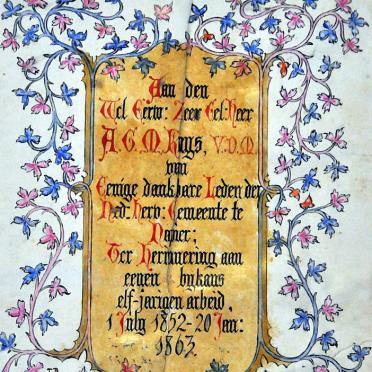 Aan den
Wel Eerw: Zeer Gel: Heer
A. G. M. Huys, V.D.M.
van
Eenige dankbare Leden der
Ned: Herv: Gemeente te
Ter Herinnering aan
eegen bykans
elf-jarigen arbeid,
1 July 1852-20 Jan:
1863.